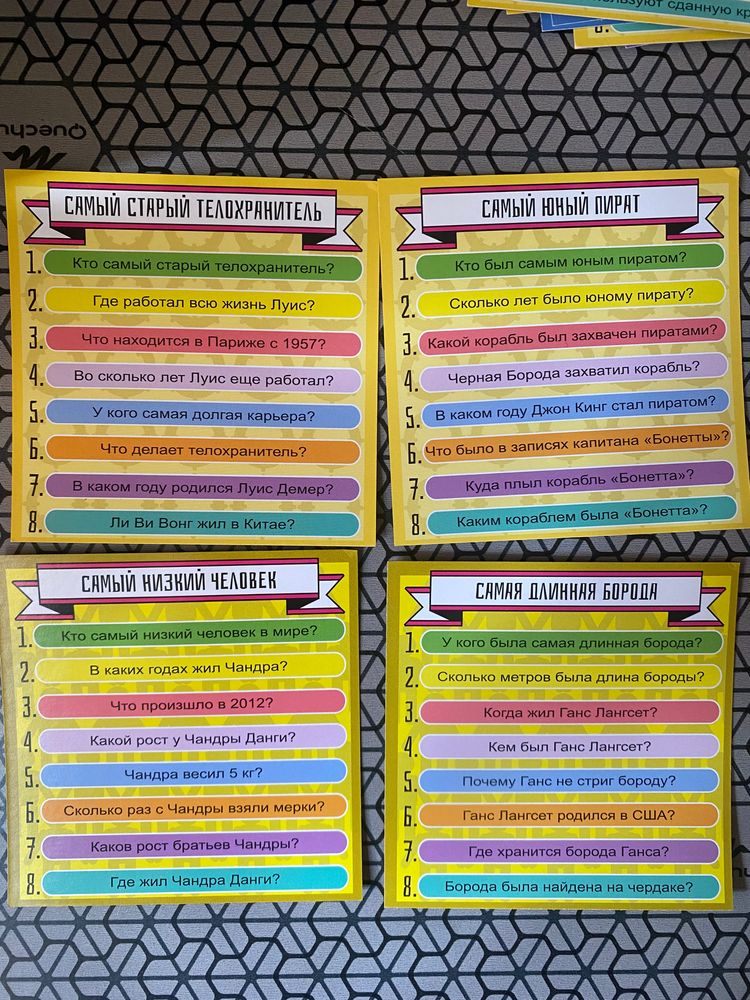 пользуют сданную кр
Quechu
САМЫЙ СТАРЫЙ ТЕЛОХРАНИТЕЛЬ
1. Кто самый старый телохранитель?
2. Где работал всю жизнь Луис?
3. Что находится в Париже с 1957?
4. Во сколько лет Луис еще работал?
5. У кого самая долгая карьера?
6. Что делает телохранитель?
7. В каком году родился Луис Демер?
8. Ли Ви Вонг жил в Китае?
САМЫЙ ЮНЫЙ ПИРАТ
1. Кто был самым юным пиратом?
2. Сколько лет было юному пирату?
3. Какой корабль был захвачен пиратами?
4. Черная Борода захватил корабль?
5. В каком году Джон Кинг стал пиратом?
6. Что было в записях капитана «Бонетты»?
7. Куда плыл корабль «Бонетта»?
8. Каким кораблем была «Бонетта»?
САМЫЙ НИЗКИЙ ЧЕЛОВЕК
1. Кто самый низкий человек в мире?
2. В каких годах жил Чандра?
3. Что произошло в 2012?
4. Какой рост у Чандры Данги?
5. Чандра весил 5 кг?
6. Сколько раз с Чандры взяли мерки?
7. Каков рост братьев Чандры?
8. Где жил Чандра Данги?
САМАЯ ДЛИННАЯ БОРОДА
1. У кого была самая длинная борода?
2. Сколько метров была длина бороды?
3. Когда жил Ганс Лангсет?
4. Кем был Ганс Лангсет?
5. Почему Ганс не стриг бороду?
6. Ганс Лангсет родился в США?
7. Где хранится борода Ганса?
8. Борода была найдена на чердаке?